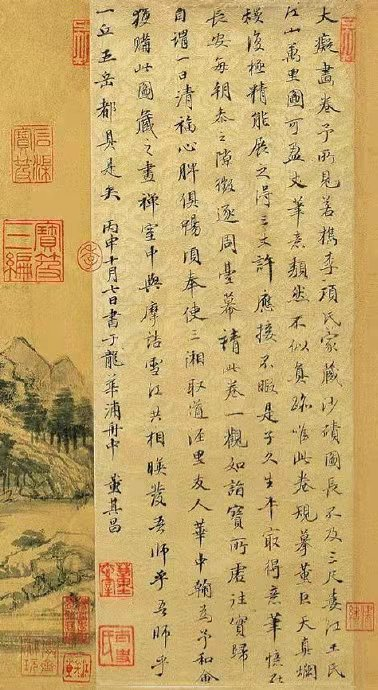 大癡畫卷予所見若檇李項氏家藏沙磧圖長不及三尺婁江王氏
江山萬里圖可盈丈筆意頹然不似真跡唯此卷規摹董巨天真爛
熳復極精能展之得三丈許應接不暇是子久生平最得意筆憶在
長安每朝參之隙徵逐周臺幕請此卷一觀如詣寶所虛往實歸
自謂一日清福心脾俱暢頃奉使三湘取道涇里友人華中翰為予和會
獲購此圖藏之畫禪室中與摩詰雪江共相映發吾師乎吾師乎
一丘五岳都具是矣 丙申十月七日書于龍華浦舟中 董其昌
石渠寶笈
寶笈三編